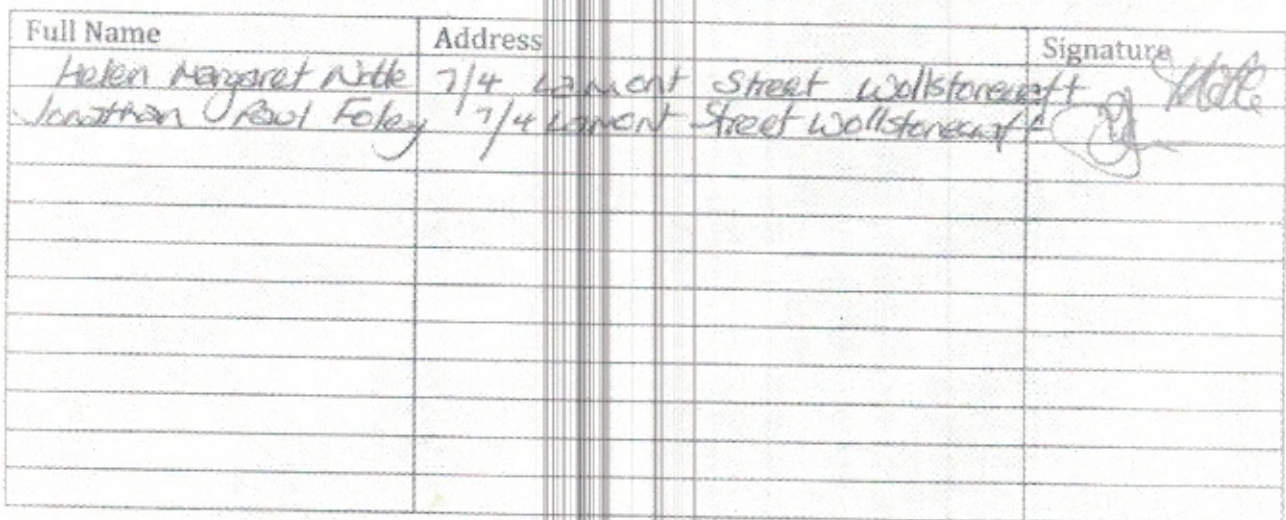 Full Name Address Signature
Helen Margaret Notle 7/4 Lamont Street Wollstonecraft
Jonathan Paul Foley 7/4 Lamont Street Wollstonecraft